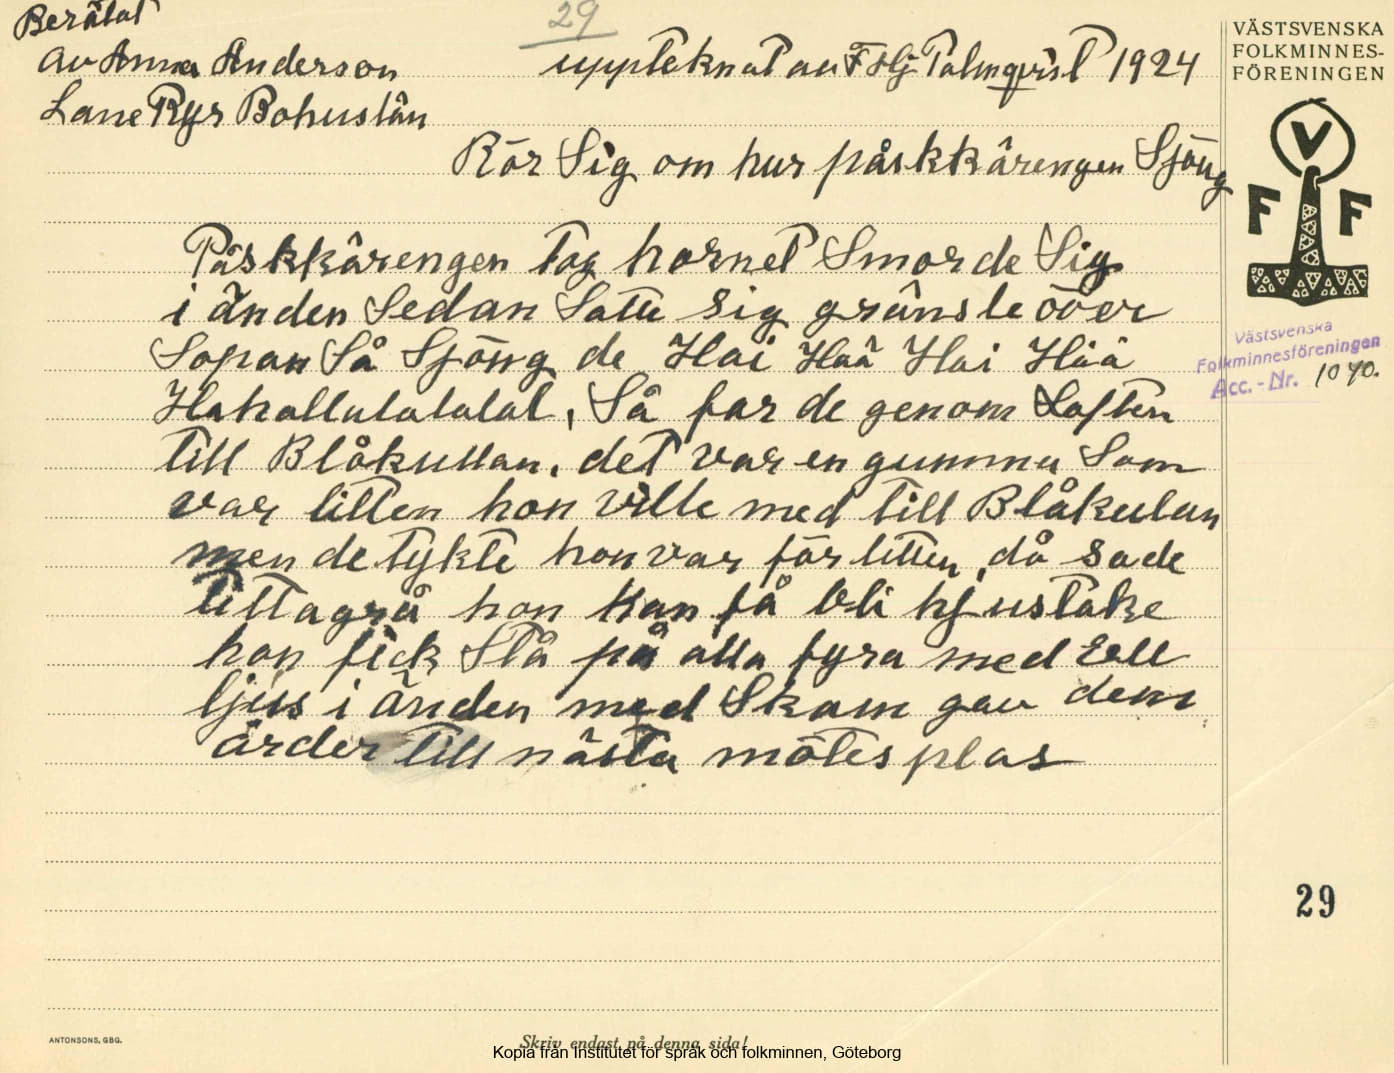 Berätat
av Anna Anderson
Lane Ryr Bohuslän
29
uppteknat av F Hj Palmqvist 1924
Rör Sig om hur påskkärengen Sjöng
Påskkärengen tog hornet Smorde Sig
i änden Sedan Satte Sig gränsle över
Sopan Så Sjöng de Hai Haä Hai Hää
Hahallulalalal, Så far de genom Loften
till Blåkullan, det var en gumma Som
var litten hon ville med till Blåkulan
men de tykte hon var för litten, då sade
Tittagrå hon kan få bli hjustake
hon fick Stå på alla fyra med Ett
ljus i änden med Skam gav dem
årder till nästa mötesplas
VÄSTSVENSKA
FOLKMINNES-
FÖRENINGEN
V
F F
Västsvenska
Folkminnesföreningen
Acc.-Nr. 1040.
29
ANTONSONS, GBG.
Skriv endast på denna sida!
Kopia från Institutet för språk och folkminnen, Göteborg